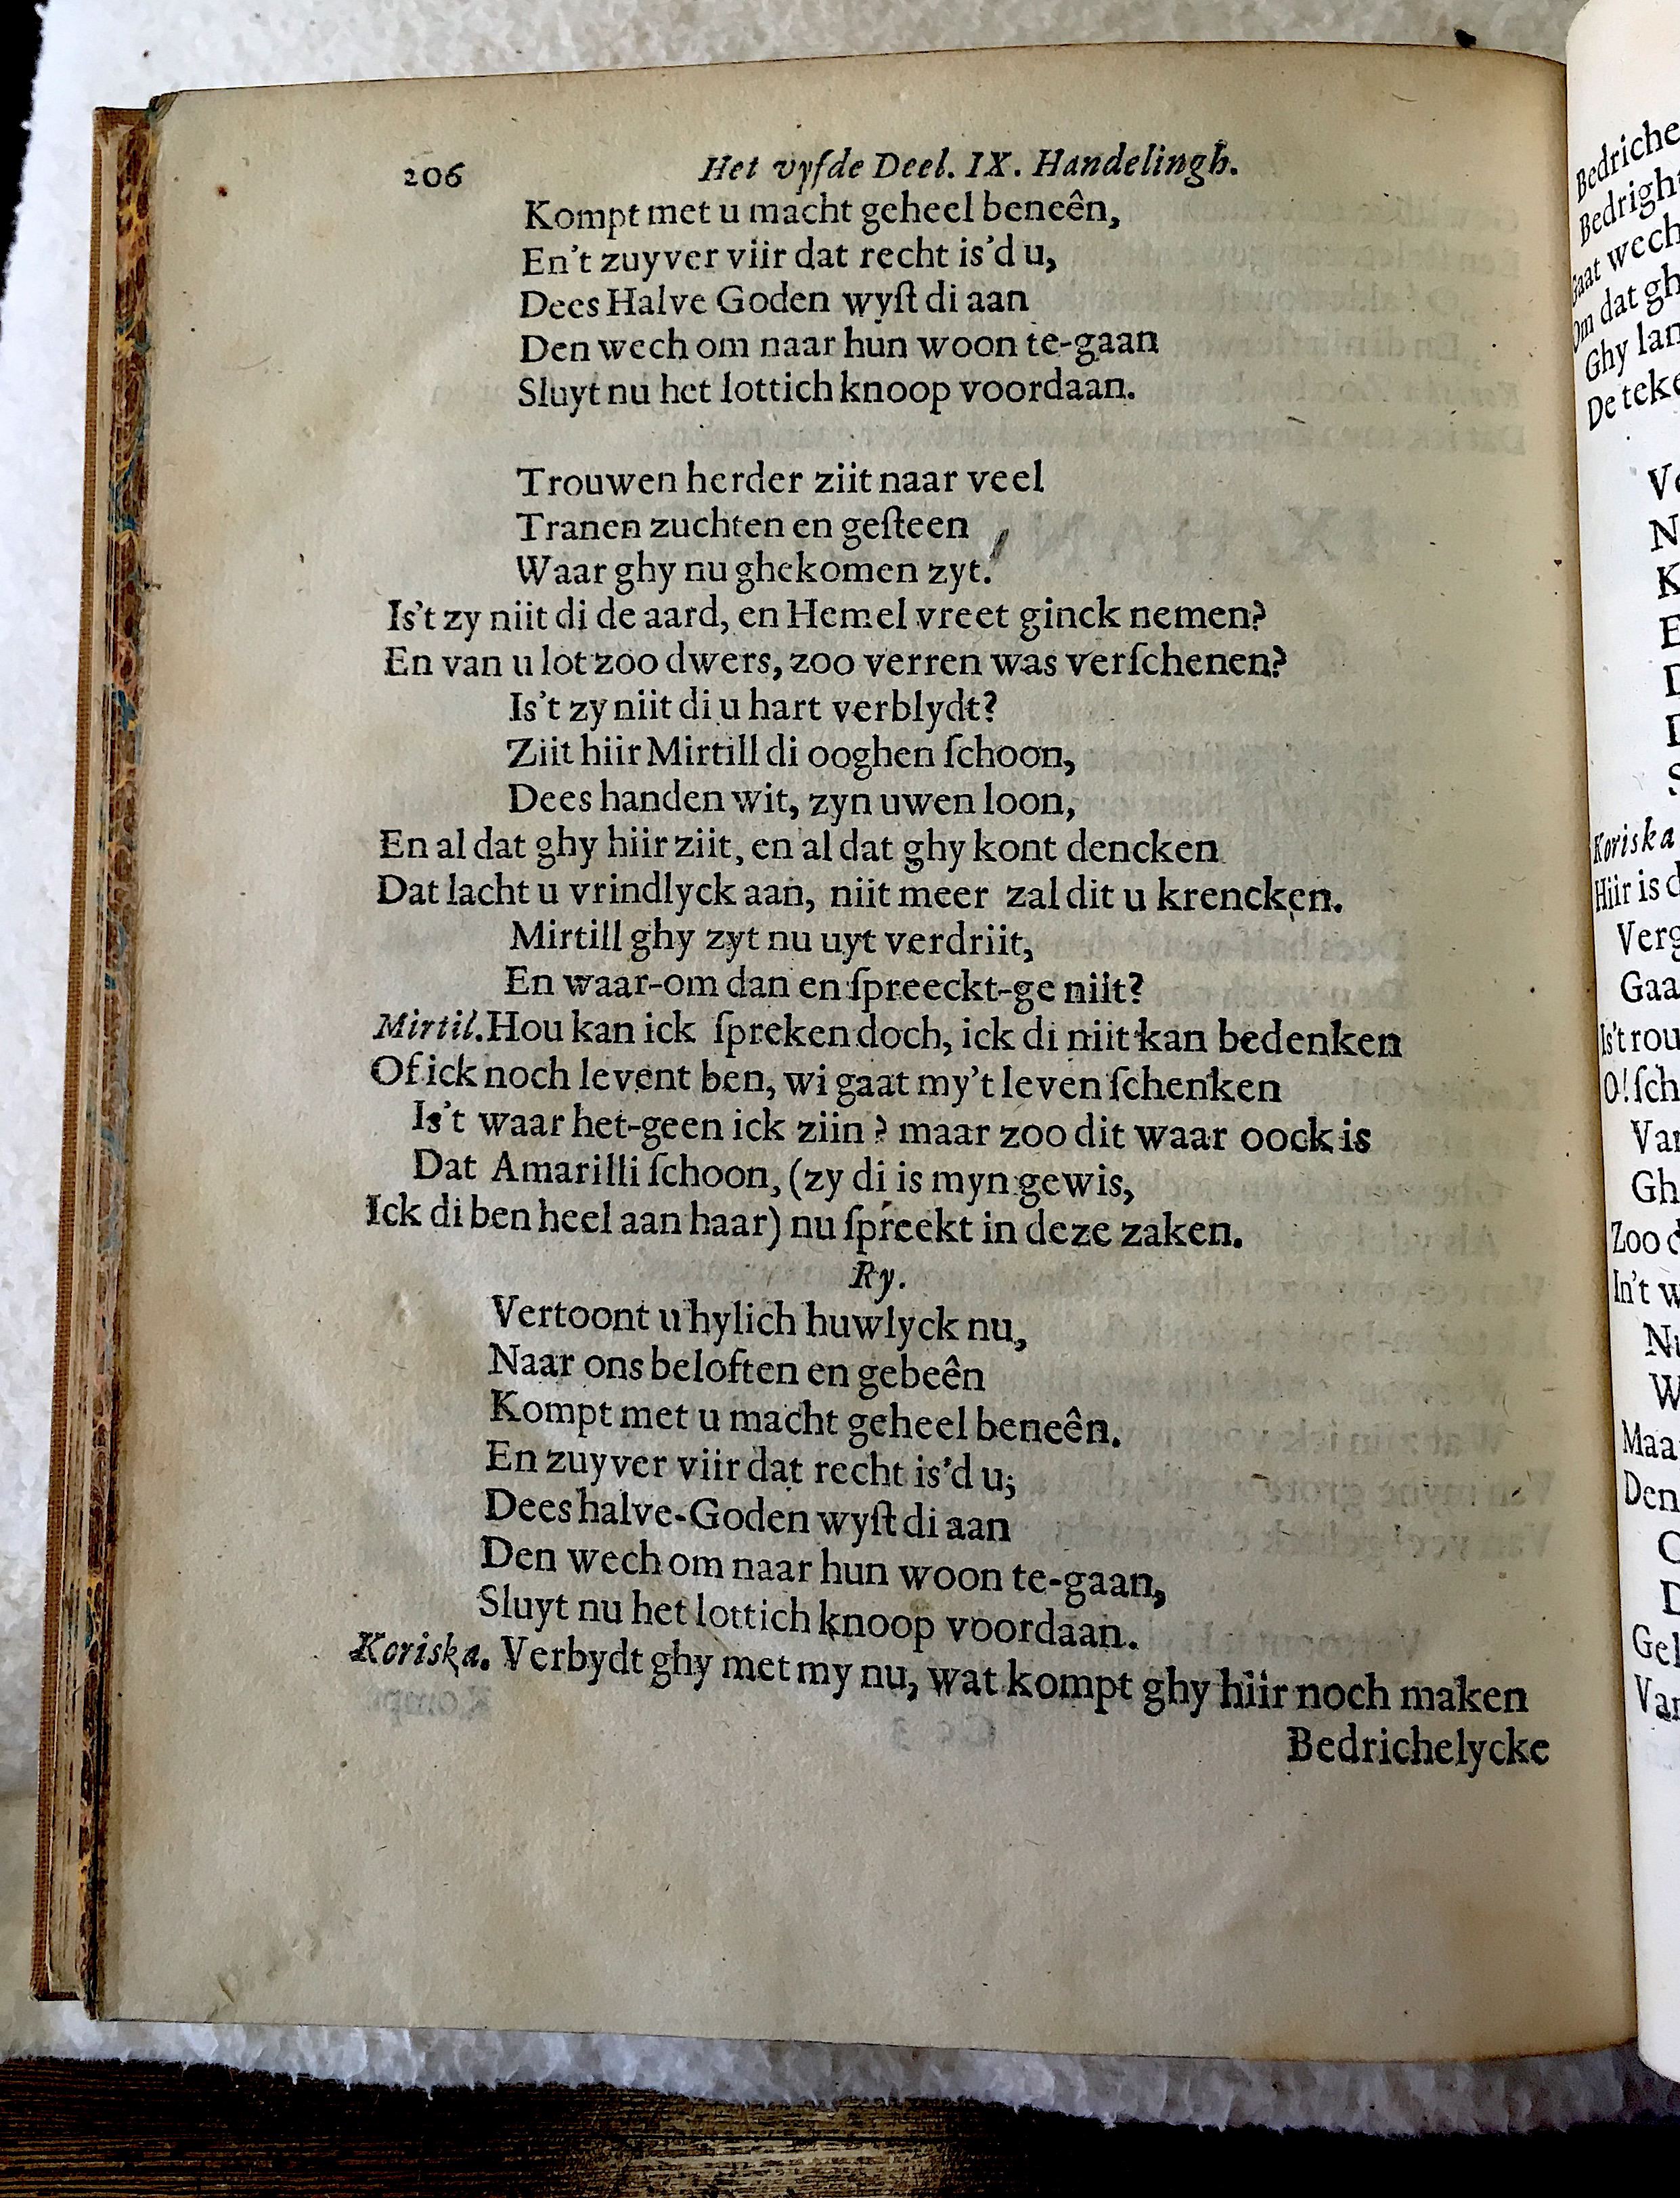 206 Het vyfde Deel. IX. Handelingh.
Kompt met u macht geheel beneên,
En't zuyver viir dat recht is'd u,
Dees Halve Goden wyſt di aan
Den wech om naar hun woon te-gaan
Sluyt nu het lottich knoop voordaan.
Trouwen herder ziit naar veel
Tranen zuchten en geſteen
Waar ghy nu ghekomen zyt.
Is't zy niit di de aard, en Hemel vreet ginck nemen?
En van u lot zoo dwers, zoo verren was verſchenen?
Is't zy niit di u hart verblydt?
Ziit hiir Mirtill di ooghen ſchoon,
Dees handen wit, zyn uwen loon,
En al dat ghy hiir ziit, en al dat ghy kont dencken
Dat lacht u vrindlyck aan, niit meer zal dit u krencken.
Mirtill ghy zyt nu uyt verdriit,
En waar-om dan en ſpreeckt-ge niit?
Mirtil. Hou kan ick ſpreken doch, ick di niit kan bedenken
Of ick noch levent ben, wi gaat my't leven ſchenken
Is't waar het-geen ick ziin? maar zoo dit waar oock is
Dat Amarilli ſchoon, (zy di is myn gewis,
Ick di ben heel aan haar) nu ſpreekt in deze zaken.
Ry.
Vertoont u hylich huwlyck nu,
Naar ons beloften en gebeên
Kompt met u macht geheel beneên.
En zuyver viir dat recht is'd u;
Dees halve-Goden wyſt di aan
Den wech om naar hun woon te-gaan,
Sluyt nu het lottich knoop voordaan.
Koriska. Verbydt ghy met my nu, wat kompt ghy hiir noch maken
Bedrichelycke
Bedriche
Bedrigh
Gaat wech
Om dat gh
Ghy lan
De teke
Koriska
Hiir is d
Verg
Gaa
Is't rou
O! ſch
Van
Gh
Zoo d
In't w
Maa
Den
Gel
Van